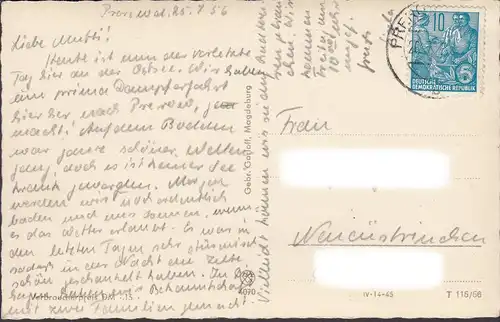 Prerow d. 25.7.56
Liebe Mutti!
Heute ist nun der vorletzte
Tag hier an der Ostsee. Wir haben
eine prima Dampferfahrt
hierher nach Prerow, ge-
macht. Auf dem Bodden
war ganz schöner Wellen-
gang, doch es ist keiner See
krank geworden. Morgen
werden wir noch ordentlich
baden und uns sonnen, wenn
es das Wetter erlaubt. Es war in
den letzten Tagen sehr stürmisch
so daß in der Nacht die Zelte
schön geschaukelt haben. In
haben Bekanntschaft
mit zwei Familien gemacht.
Vielleicht können wir sie auch
Freitag
10 oder
Gebr. Garloff, Magdeburg
4070
Verbraucherpreis DM -.15
PRER
10
DEUTSCHE
DEMOKRATISCHE REPUBLIK
Frau
Neucüstrinchen
IV-14-45
T 115/56